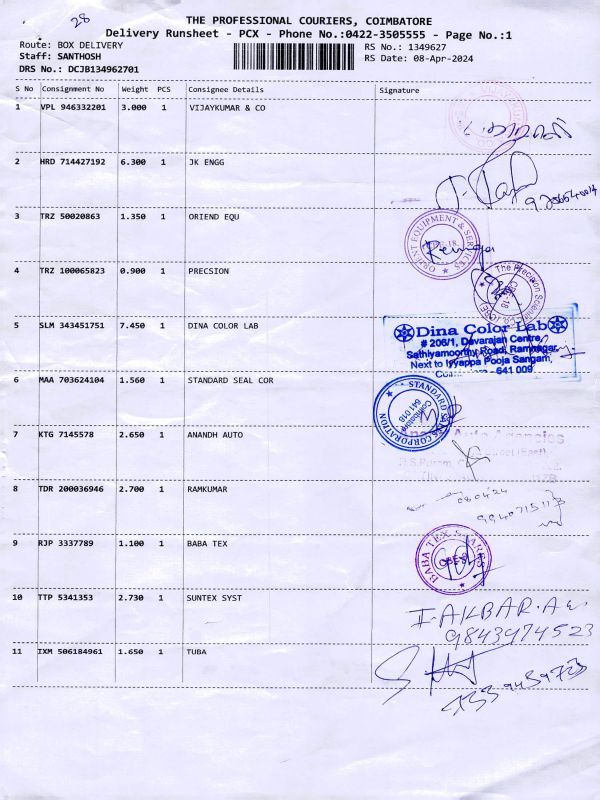 28
THE PROFESSIONAL COURIERS, COIMBATORE
Delivery Runsheet - PCX - Phone No.:0422-3505555 - Page No.:1
Route: BOX DELIVERY
RS No.: 1349627
Staff: SANTHOSH
RS Date: 08-Apr-2024
DRS No.: DCJB134962701
S No Consignment No Weight PCS Consignee Details Signature
1 VPL 946332201 3.000 1 VIJAYKUMAR & CO
2 HRD 714427192 6.300 1 JK ENGG
3 TRZ 50020863 1.350 1 ORIEND EQU
ORIENT EQUIPMENT & SERVICES
4 TRZ 100065823 0.900 1 PRECSION
The Precision Scientific
5 SLM 343451751 7.450 1 DINA COLOR LAB
Dina Color Lab
# 206/1, Devarajan Centre,
Sathiyamoorthy Road, Ramnagar,
Next to Iyyappa Pooja Sangam,
641 009
6 MAA 703624104 1.560 1 STANDARD SEAL COR
STANDARD SEALS CORPORATION
Coimbatore
641 018
7 KTG 7145578 2.650 1 ANANDH AUTO
Anandh Auto Agencies
8 TDR 200036946 2.700 1 RAMKUMAR
08/04/24
9 RJP 3337789 1.100 1 BABA TEX
BABA TEX SPARES
10 TTP 5341353 2.730 1 SUNTEX SYST
I. AKBAR. A
9843974523
11 IXM 506184961 1.650 1 TUBA